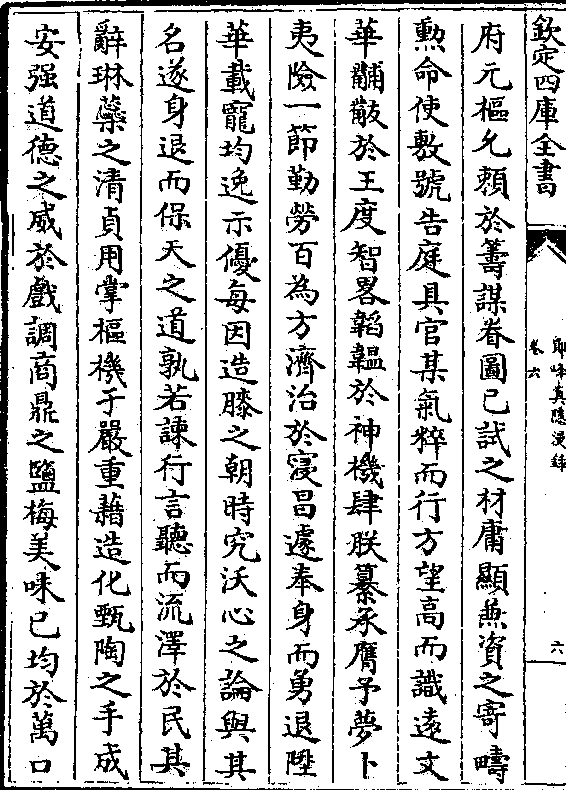 欽定四庫全書
鄮峰真隱漫錄
卷六
六
府元樞允賴於籌謀眷圖已試之材庸顯兼資之寄疇
勲命使敷號告庭具官某氣粹而行方望高而識遠文
華黼黻於王度智畧韜韞於神機肆朕纂承膺予夢卜
夷險一節勤勞百為方濟治於寖昌遽奉身而勇退陞
華載寵均逸示優每因造膝之朝時究沃心之論與其
名遂身退而保天之道孰若諫行言聽而流澤於民其
辭琳蘂之清貞用掌樞機于嚴重藉造化甄陶之手成
安强道德之威於戲調商鼎之鹽梅美味已均於萬口